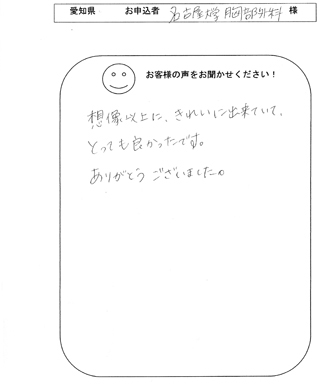 愛知県 お申込者 名古屋大学 胸部外科 様
お客様の声をお聞かせください！
想像以上に、きれいに出来ていて、
とっても良かったです。
ありがとうございました。